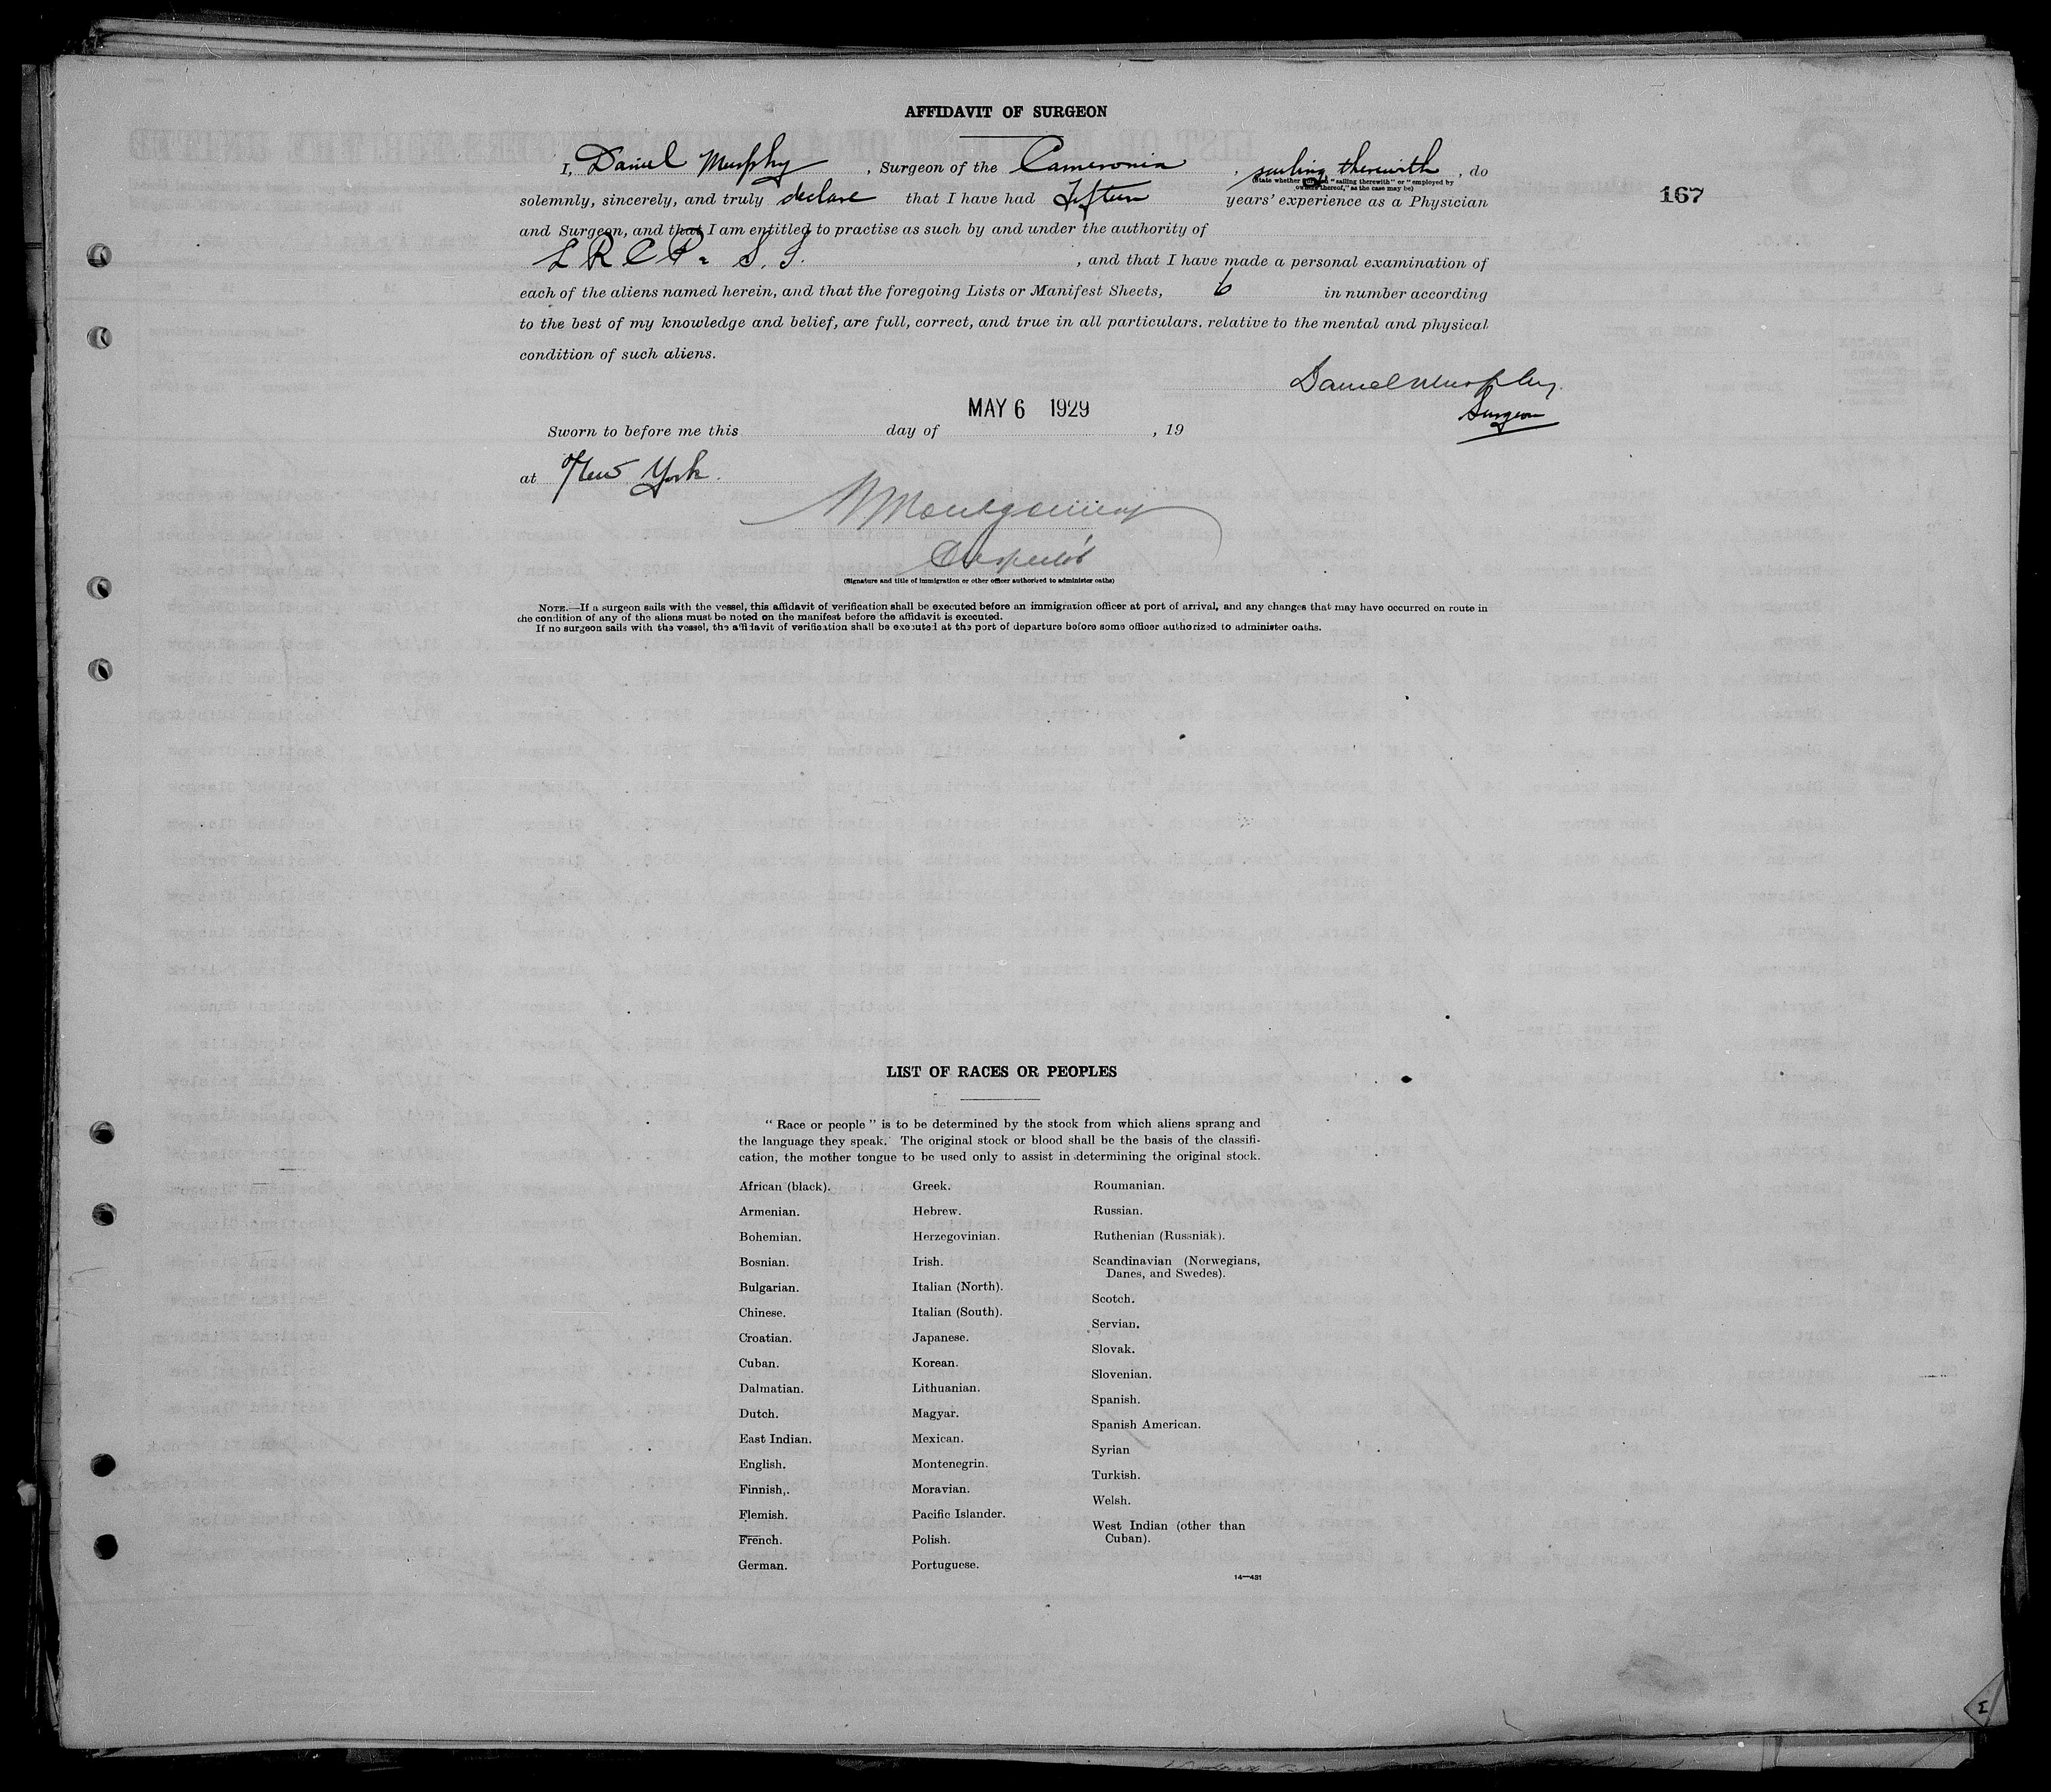 AFFIDAVIT OF SURGEON
I, Daniel Murphy, Surgeon of the Cameronia, sailing therewith, do
(State whether surgeon "sailing therewith" or "employed by
owners thereof," as the case may be)
167
solemnly, sincerely, and truly declare that I have had Fifteen years' experience as a Physician
and Surgeon, and that I am entitled to practise as such by and under the authority of
L R C P. S. I., and that I have made a personal examination of
each of the aliens named herein, and that the foregoing Lists or Manifest Sheets, 6 in number according
to the best of my knowledge and belief, are full, correct, and true in all particulars, relative to the mental and physical
condition of such aliens.
Daniel Murphy.
Surgeon
MAY 6 1929
Sworn to before me this day of , 19
at New York.
Montgomery
Inspector
(Signature and title of immigration or other officer authorized to administer oaths)
NOTE.—If a surgeon sails with the vessel, this affidavit of verification shall be executed before an immigration officer at port of arrival, and any changes that may have occurred en route in
the condition of any of the aliens must be noted on the manifest before the affidavit is executed.
If no surgeon sails with the vessel, the affidavit of verification shall be executed at the port of departure before some officer authorized to administer oaths.
LIST OF RACES OR PEOPLES
"Race or people" is to be determined by the stock from which aliens sprang and
the language they speak. The original stock or blood shall be the basis of the classifi-
cation, the mother tongue to be used only to assist in determining the original stock.
African (black).
Armenian.
Bohemian.
Bosnian.
Bulgarian.
Chinese.
Croatian.
Cuban.
Dalmatian.
Dutch.
East Indian.
English.
Finnish.
Flemish.
French.
German.
Greek.
Hebrew.
Herzegovinian.
Irish.
Italian (North).
Italian (South).
Japanese.
Korean.
Lithuanian.
Magyar.
Mexican.
Montenegrin.
Moravian.
Pacific Islander.
Polish.
Portuguese.
Roumanian.
Russian.
Ruthenian (Russniak).
Scandinavian (Norwegians,
Danes, and Swedes).
Scotch.
Servian.
Slovak.
Slovenian.
Spanish.
Spanish American.
Syrian
Turkish.
Welsh.
West Indian (other than
Cuban).
14—431